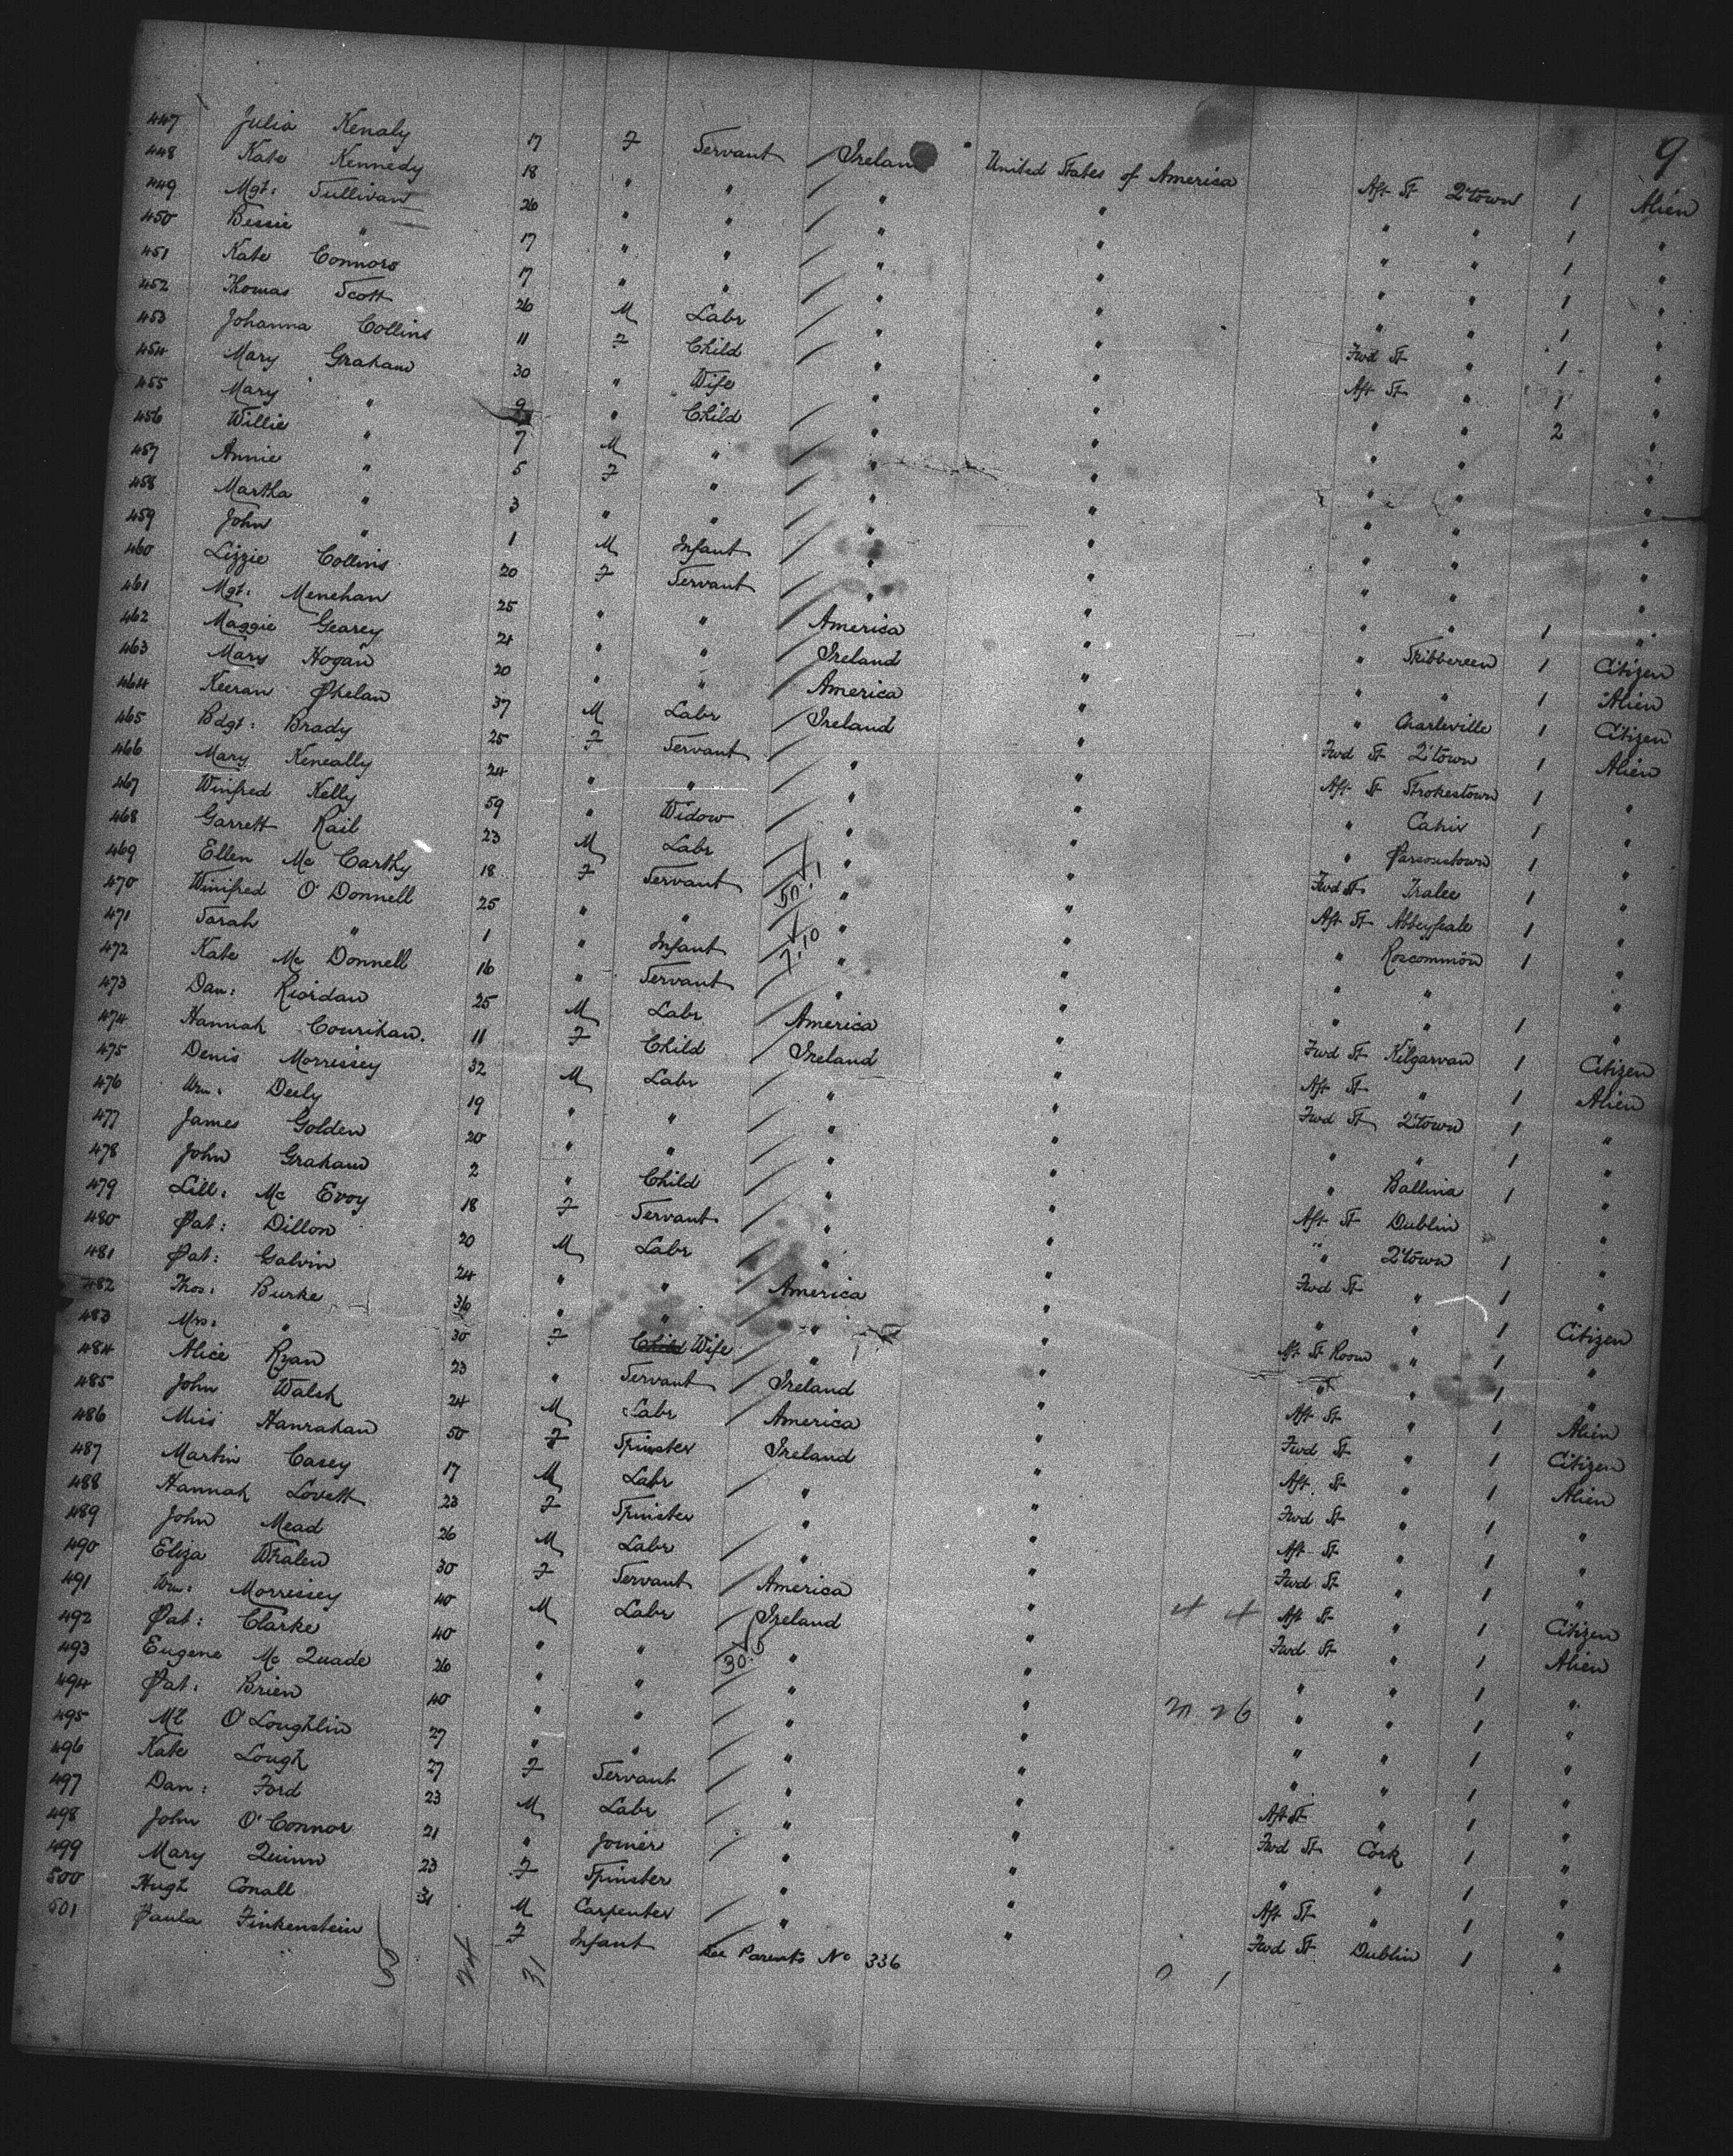 9
447 Julia Kenaly 17 F Servant Ireland United States of America Aft St Q'town 1 Alien
448 Kate Kennedy 18 " " " " " " 1 "
449 Mgt: Sullivan 26 " " " " " " 1 "
450 Bessie " 17 " " " " " " 1 "
451 Kate Connors 17 " " " " " " 1 "
452 Thomas Scott 26 M Labr " " Fwd St " 1 "
453 Johanna Collins 11 F Child " " Aft St " 1 "
454 Mary Graham 30 " Wife " " " " 2 "
455 Mary " 9 " Child " " " " "
456 Willie " 7 M " " " " " "
457 Annie " 5 F " " " " " "
458 Martha " 3 " " " " " " "
459 John " 1 M Infant " " " " "
460 Lizzie Collins 20 F Servant " " " " 1 "
461 Mgt: Menehan 25 " " America " " Skibbereen 1 Citizen
462 Maggie Gearey 21 " " Ireland " " " 1 Alien
463 Mary Hogan 20 " " America " " Charleville 1 Citizen
464 Keeran Phelan 37 M Labr Ireland " Fwd St Q'town 1 Alien
465 Bdgt: Brady 25 F Servant " " Aft St Strokestown 1 "
466 Mary Keneally 24 " " " " " Cahir 1 "
467 Winifred Kelly 59 " Widow " " " Parsonstown 1 "
468 Garrett Rail 23 M Labr " " Fwd St Tralee 1 "
469 Ellen Mc Carthy 18 F Servant " " Aft St Abbeyfeale 1 "
470 Winifred O'Donnell 25 " " " " " Roscommon 1 "
471 Sarah " 1 " Infant " " " " "
472 Kate Mc Donnell 16 " Servant " " " " 1 "
473 Dan: Riordan 25 M Labr America " Fwd St Kilgarvan 1 Citizen
474 Hannah Courihan. 11 F Child Ireland " Aft St " 1 Alien
475 Denis Morrissey 32 M Labr " " Fwd St Q'town 1 "
476 Wm: Deely 19 " " " " " " 1 "
477 James Golden 20 " " " " " Ballina 1 "
478 John Graham 2 " Child " " Aft St Dublin "
479 Lill: Mc Evoy 18 F Servant " " " Q'town 1 "
480 Pat: Dillon 20 M Labr " " Fwd St " 1 "
481 Pat: Galvin 24 " " America " " " 1 Citizen
482 Thos: Burke 36 " " " " Aft St Room " 1 "
483 Mrs: " 30 F Child Wife " " " " 1 "
484 Alice Ryan 23 " Servant Ireland " Aft St " 1 Alien
485 John Walsh 24 M Labr America " Fwd St " 1 Citizen
486 Miss Hanrahan 50 F Spinster Ireland " Aft St " 1 Alien
487 Martin Casey 17 M Labr " " Fwd St " 1 "
488 Hannah Lovett 23 F Spinster " " Aft St " 1 "
489 John Mead 26 M Labr " " Fwd St " 1 "
490 Eliza Whalen 30 F Servant America " Aft St " 1 Citizen
491 Wm: Morrissey 40 M Labr Ireland " Fwd St " 1 Alien
492 Pat: Clarke 40 " " " " " " 1 "
493 Eugene Mc Quade 26 " " " " " " 1 "
494 Pat: Brien 40 " " " " " " 1 "
495 Ml O'Loughlin 27 " " " " " " 1 "
496 Kate Lough 27 F Servant " " Aft St " 1 "
497 Dan: Ford 23 M Labr " " Fwd St Cork 1 "
498 John O'Connor 21 " Joiner " " " " 1 "
499 Mary Quinn 23 F Spinster " " Aft St " 1 "
500 Hugh Conall 31 M Carpenter " " Fwd St Dublin 1 "
501 Paula Finkenstein F Infant See Parents No 336